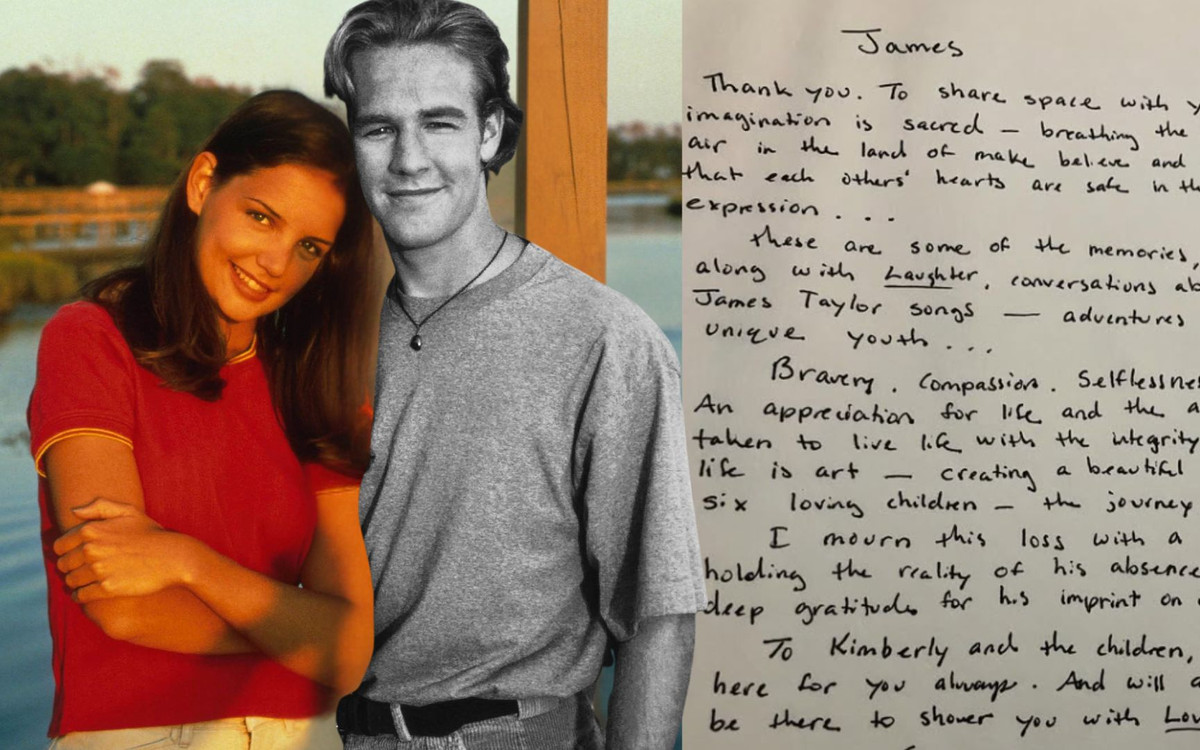 James
Thank you. To share space with y
imagination is sacred — breathing the
air in the land of make believe and
that each others' hearts are safe in th
expression . . .
these are some of the memories,
along with Laughter, conversations ab
James Taylor songs — adventures
unique youth . . .
Bravery. Compassion. Selflessnes
An appreciation for life and the a
taken to live life with the integrity
life is art — creating a beautiful
six loving children — the journey
I mourn this loss with a
holding the reality of his absence
deep gratitude for his imprint on
To Kimberly and the children,
here for you always. And will a
be there to shower you with Lov